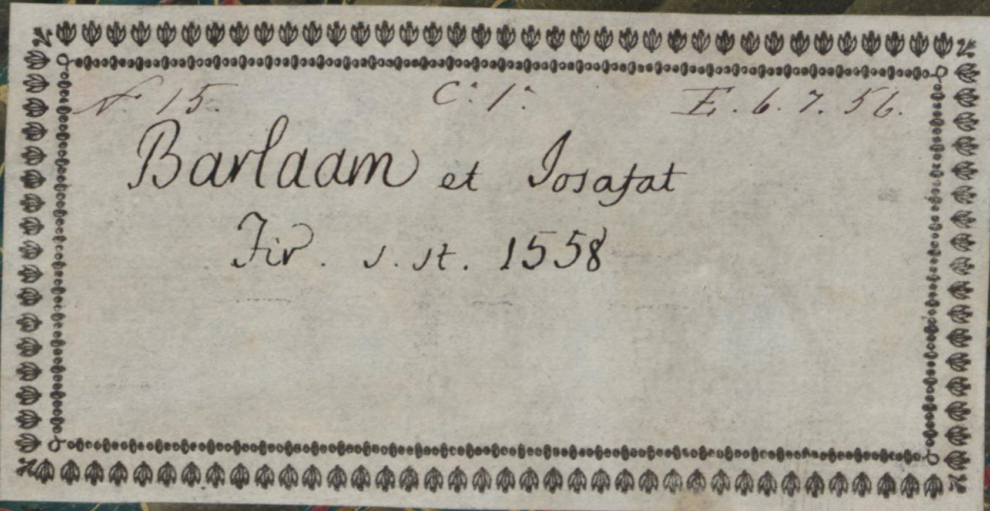 N. 15. C. 1. E. 6. 7. 56.
Barlaam et Iosafat
Fir. s. st. 1558